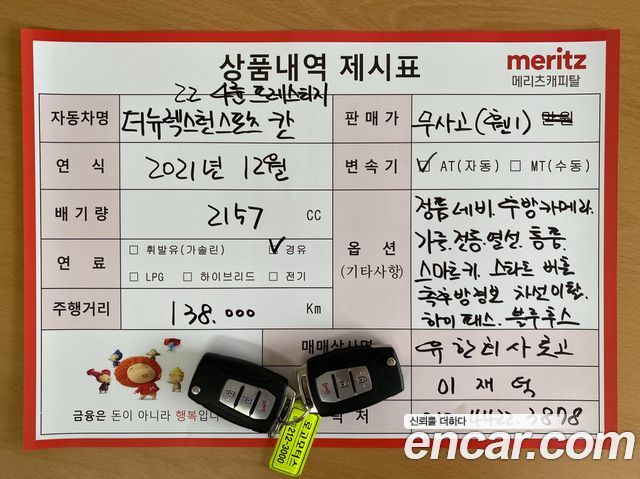 상품내역 제시표
meritz
메리츠캐피탈
2.2 4륜 프레스티지
자동차명 더뉴렉스턴스포츠 칸 판매가 무사고 만원
연식 2021년 12월 변속기 ☑ AT(자동) □ MT(수동)
배기량 2157 CC
연료 □ 휘발유(가솔린) ☑ 경유
□ LPG □ 하이브리드 □ 전기
주행거리 138.000 Km
옵션
(기타사항)
정품 네비. 후방카메라.
가죽. 전동. 열선. 통풍.
스마트키. 스타트 버튼
측후방경보 차선이탈.
하이패스. 블루투스
매매상사명
이재덕
금융은 돈이 아니라 행복입니
락처
신뢰를 더하다
encar.com
로고모터스
212-3000